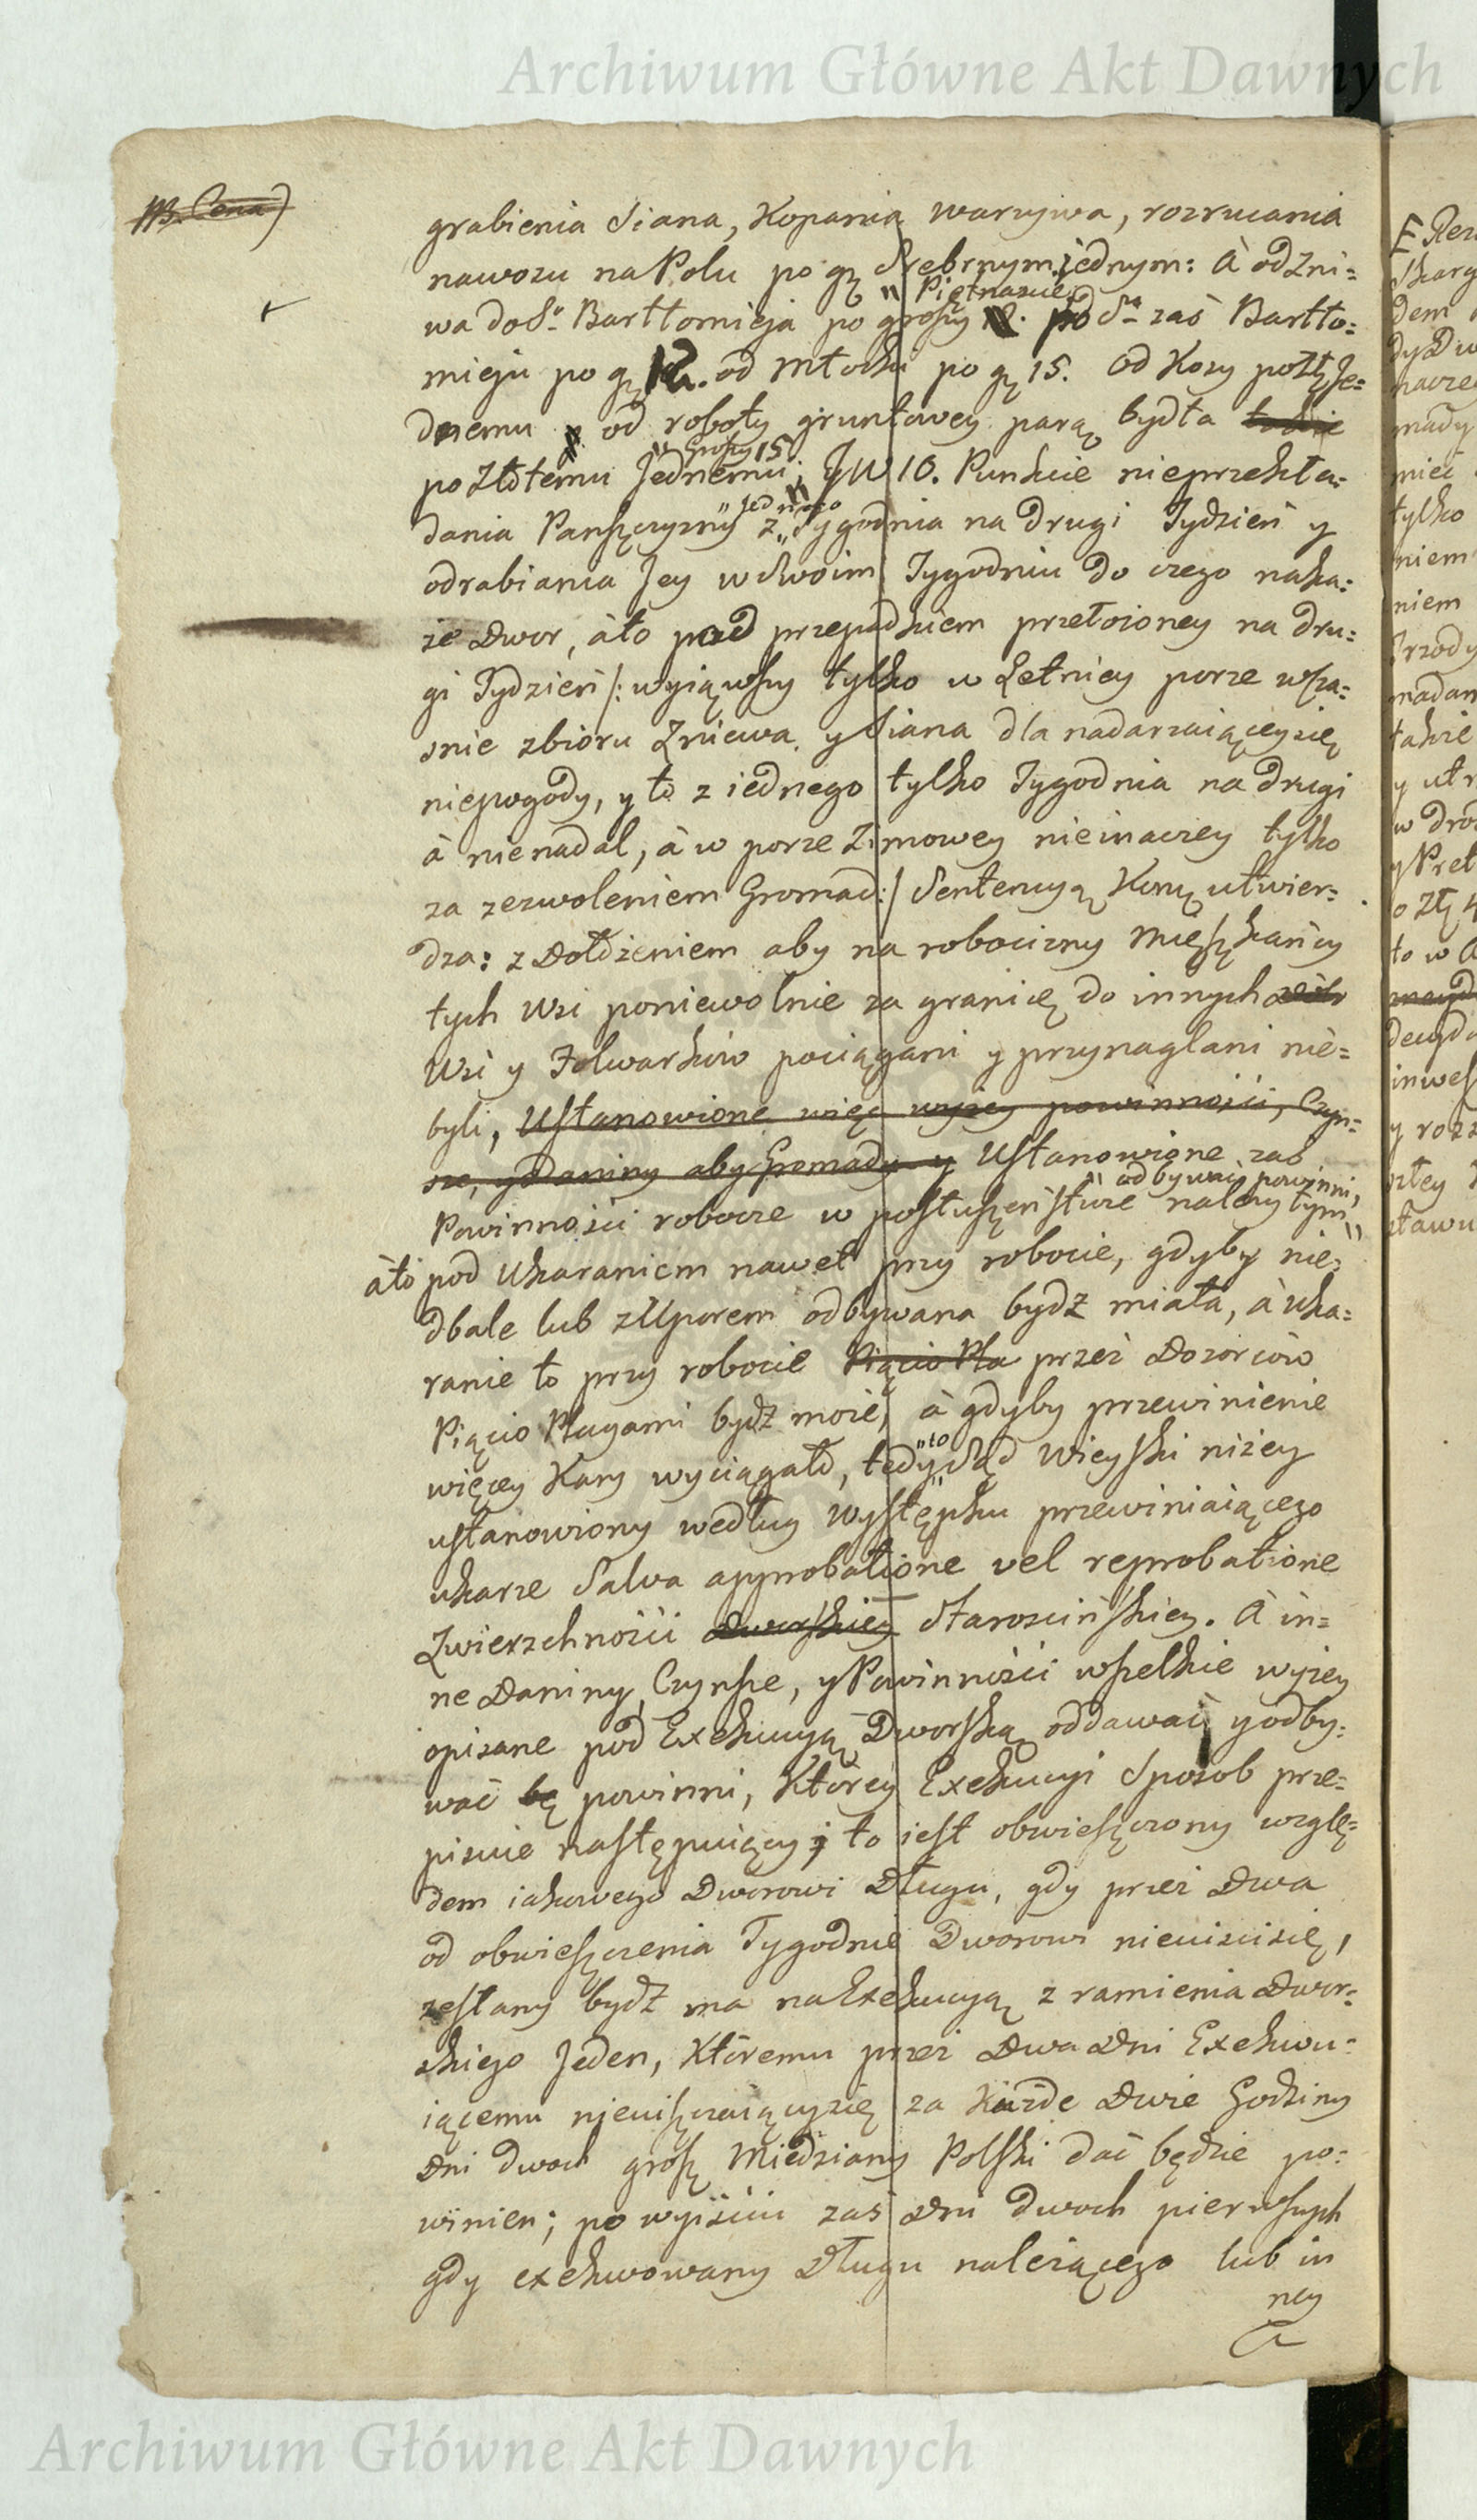 Archiwum Główne Akt Dawnych
NB. Cena)
grabienia siana, Kopania warzywa, rozrucania
nawozu na Polu po gę Srebrnym jednym: à od Zni=
" Piętnascie
wa do S. Bartłomieja po groszy 12. po S. zaś Bartło=
mieju po gę 12. od Młocki po gę 15. od Kosy po Złę Je=
dnemu od roboty gruntowey parą bydła
" Groszy 15
po Złotemu Jednemu; Y W 10. Punkcie nieprzekła=
" Jednego
dania Panszczyzny z " Tygodnia na drugi Tydzień y
odrabiania Jey w swoim Tygodniu do czego naka=
że Dwor, àto pod przepadkiem przełożoney na dru=
gi Tydzień /: wyiąwszy tylko w Letniey porze wcza=
snie zbioru Zniewa y Siana dla nadarzaiącey się
niepogody, y to z iednego tylko Tygodnia na drugi
à nie nadal, à w porze Zimowey nieinaczey tylko
za zezwoleniem Gromad:/ Sentencyą Kons. utwier=
dza: z Dołożeniem aby na robocizny Mieszkańcy
tych Wsi poniewolnie za granicę do innych
Wsi y Folwarkow pociągani y przynaglani nie=
byli, Ustanowione więc wyżey powinności, Czyn=
sze, y Daniny aby Gromady y Ustanowione zaś
" odbywać powinni,
Powinności robocze w posłuszeństwie należytym "
àto pod Ukaraniem nawet przy robocie, gdyby nie=
dbale lub z Uporem odbywana bydź miała, à uka=
ranie to przy robocie Piącio Pla przez Dozorcow
Piącio Plagami bydź może, à gdyby przewinienie
" to
więcey Kary wyciągało, tedy " Sąd Wieyski niżey
ustanowiony według Występku przewiniaiącego
ukarze Salva approbatione vel reprobatione
Zwierzchności Dworskiey Starościńskiey. À in=
ne Daniny, Czynsze, y Powinności wszelkie wyżey
opisane pod Exekucyą Dworską oddawać y odby=
wać bę powinni, Którey Exekucyi Sposob prze=
pisuie następuiący; to iest obwieszczony wzglę=
dem iakowego Dworowi Długu, gdy przez Dwa
od obwieszczenia Tygodnie Dworowi nieuiści się,
zesłany bydź ma na Exekucyą z ramienia Dwor=
skiego Jeden, Któremu przez Dwa Dni Exekwu=
iącemu nieuiszczaiący się za Każde Dwie Godziny
Dni dwoch grosz Miedziany Polski dać będzie po=
winien; po wyiściu zaś Dni Dwoch pierwszych
gdy exekwowany Długu należącego lub in
ney
Archiwum Główne Akt Dawnych